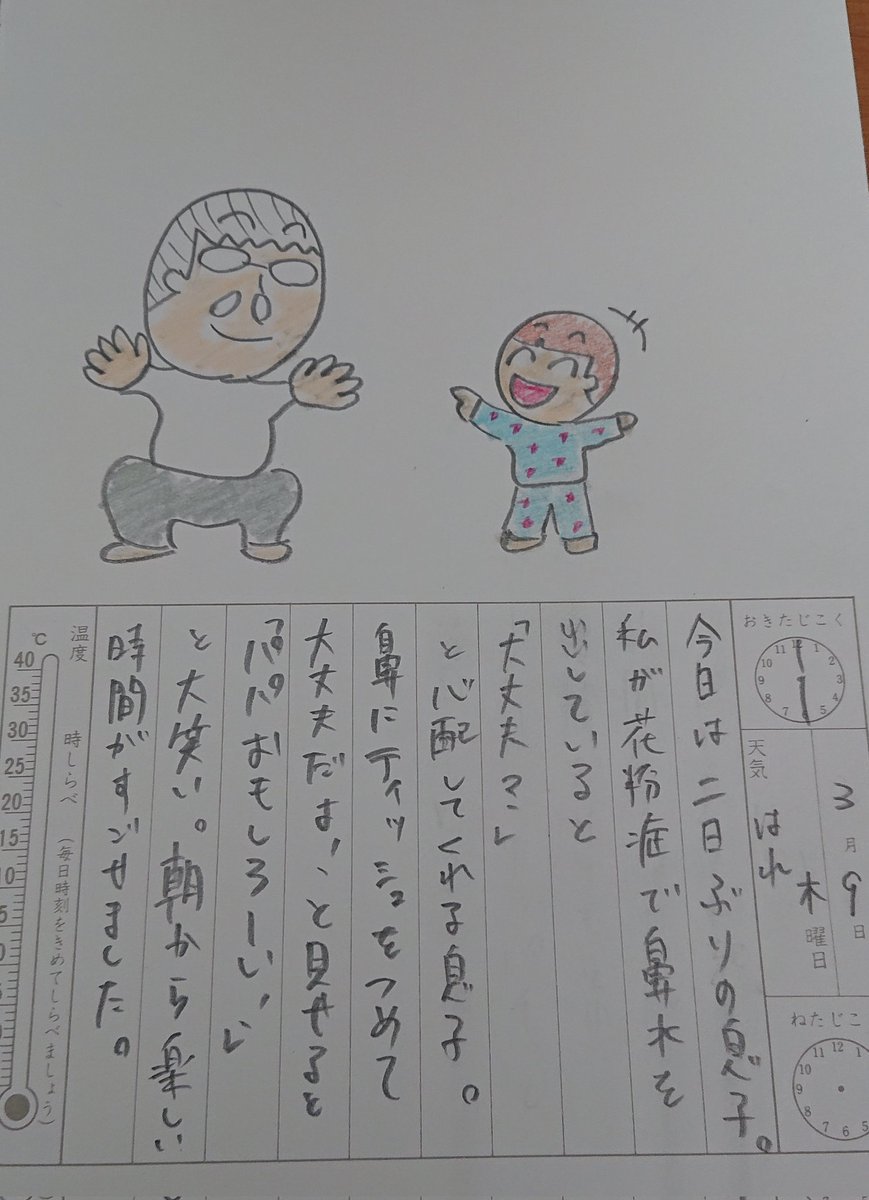 おきたじこく
12 1 2 3 4 5 7 8 9 10 11
3月9日
木曜日
天気
はれ
ねたじこ
11 12 1 10 9 8 7 6 5
今日は二日ぶりの息子。
私が花粉症で鼻水を
出していると
「大丈夫?」
と心配してくれる息子。
鼻にティッシュをつめて
大丈夫だよ!と見せると
「パパおもしろーい!」
と大笑い。朝から楽しい
時間がすごせました。
温度
時しらべ
(毎日時刻をきめてしらべましょう)
℃
40
35
30
25
20
15
10
5
0